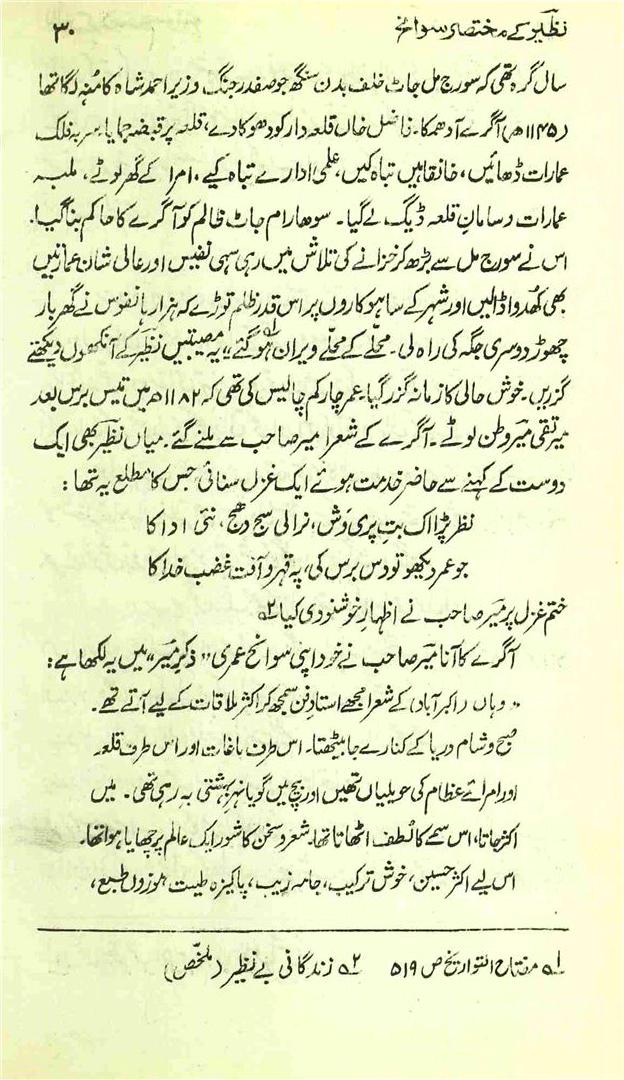 نظیر کے مختصر سوانح ۳۰
سال گرہ تھی کہ سورج مل جاٹ خلف بدن سنگھ جو صفدر جنگ وزیر احمد شاہ کا منہ لگا تھا
(۱۱۴۵ھ) آگرے آدھمکا۔ فاضل خاں قلعہ دار کو دھوکا دے، قلعہ پر قبضہ جمایا۔ سر بہ فلک
عمارات ڈھائیں، خانقاہیں تباہ کیں، علمی ادارے تباہ کیے، امرا کے گھر لوٹے، ملبہ
عمارات و سامان قلعہ ڈیگ لے گیا۔ سوھا رام جاٹ ظالم کو آگرے کا حاکم بنا گیا۔
اس نے سورج مل سے بڑھ کر خزانے کی تلاش میں رہی سہی نفیس اور عالی شان عمارتیں
بھی کھُدوا ڈالیں اور شہر کے ساہوکاروں پر اس قدر ظلم توڑے کہ ہزارہا نفوس نے گھر بار
چھوڑ دوسری جگہ کی راہ لی۔ محلّے کے محلّے ویران ہو گئے،،۱؎ یہ مصیبتیں نظیر کے آنکھوں دیکھتے
گزریں۔ خوش حالی کا زمانہ گزر گیا۔ عمر چار کم چالیس کی تھی کہ ۱۱۸۲ھ میں تیس برس بعد
میر تقی میر وطن لوٹے۔ آگرے کے شعرا میر صاحب سے ملنے گئے۔ میاں نظیر بھی ایک
دوست کے کہنے سے حاضر خدمت ہوئے ایک غزل سنائی جس کا مطلع یہ تھا :
نظر پڑا اک بتِ پری وَش، نرالی سج دھج، نئی ادا کا
جو عمر دیکھو تو دس برس کی، پہ قہر و آفت غضب خدا کا
ختم غزل پر میر صاحب نے اظہارِ خوشنودی کیا۲؎
آگرے کا آنا میر صاحب نے خود اپنی سوانح عمری ”ذکرِ میر“ میں یہ لکھا ہے :
”وہاں (اکبرآباد) کے شعرا مجھے استادِ فن سمجھ کر اکثر ملاقات کے لیے آتے تھے۔
صبح و شام دریا کے کنارے جا بیٹھتا۔ اس طرف باغات اور اس طرف قلعہ
اور امرائے عظام کی حویلیاں تھیں اور بیچ میں گویا نہر بہشتی بہ رہی تھی۔ میں
اکثر جاتا، اس سمے کا لُطف اٹھاتا تھا۔ شعر و سخن کا شور ایک عالم پر چھایا ہوا تھا۔
اس لیے اکثر حسین، خوش ترکیب، جامہ زیب، پاکیزہ طینت موزوں طبع،
۱؎ مفتاح التواریخ ص ۵۱۹ ۲؎ زندگانی بے نظیر (ملخّص)